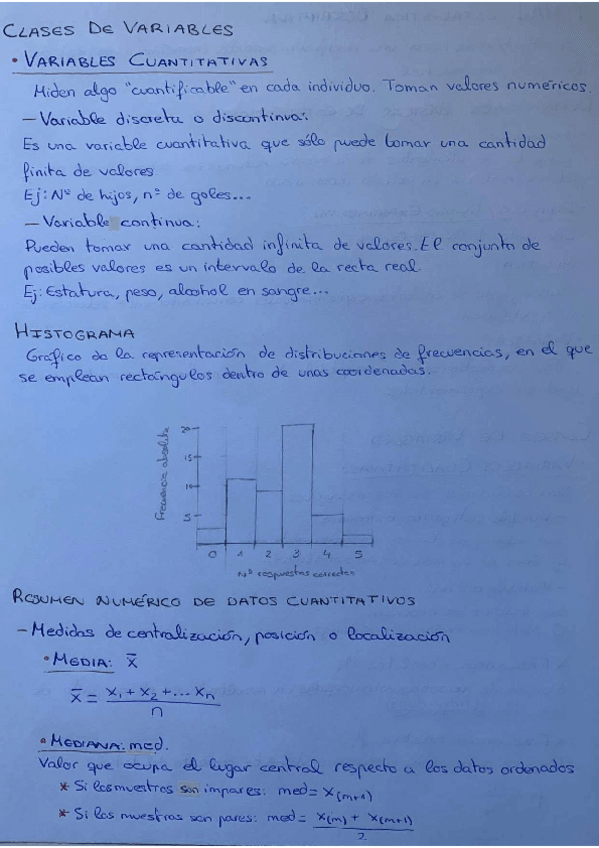 CLASES DE VARIABLES
• VARIABLES CUANTITATIVAS
Miden algo "cuantificable" en cada individuo. Toman valores numéricos.
– Variable discreta o discontinua:
Es una variable cuantitativa que sólo puede tomar una cantidad
finita de valores
Ej: Nº de hijos, nº de goles...
– Variable continua:
Pueden tomar una cantidad infinita de valores. El conjunto de
posibles valores es un intervalo de la recta real.
Ej: Estatura, peso, alcohol en sangre...
HISTOGRAMA
Gráfico de la representación de distribuciones de frecuencias, en el que
se emplean rectángulos dentro de unas coordenadas.
Frecuencia absoluta
20
15
10
5
0 1 2 3 4 5
Nº respuestas correctas
RESUMEN NUMÉRICO DE DATOS CUANTITATIVOS
– Medidas de centralización, posición o localización
• MEDIA: x̄
x̄ = x₁ + x₂ + ... xₙ / n
• MEDIANA: med.
Valor que ocupa el lugar central respecto a los datos ordenados
* Si las muestras son impares: med = x(m+1)
* Si las muestras son pares: med = x(m) + x(m+1) / 2